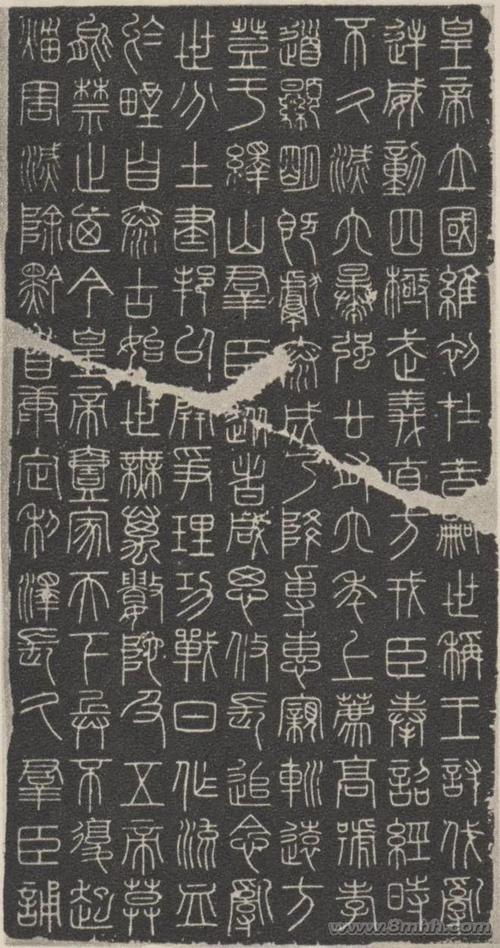 皇帝立國維初在昔嗣世稱王討伐亂
逆威動四極武義直方戎臣奉詔經時
不久滅六暴強廿有六年上薦高號孝
道顯明既獻泰成乃降專惠親巡遠方
登于繹山群臣從者咸思攸長追念亂
世分土建邦以開爭理功戰日作流血
於野自泰古始世無萬數陀及五帝莫
能禁止迺今皇帝壹家天下兵不復起
災害滅除黔首康定利澤長久群臣誦
www.8mhh.com